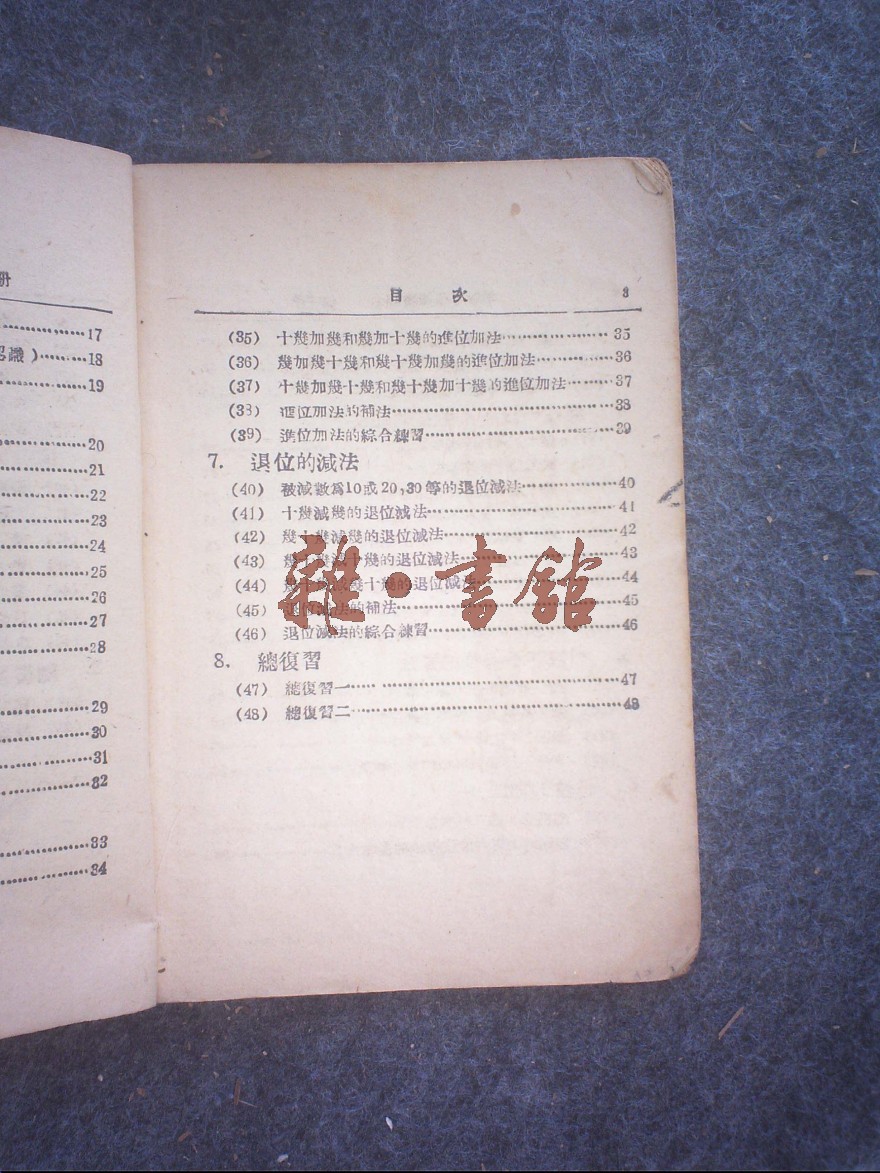 册
17
認識)……18
19
20
21
22
23
24
25
26
27
28
29
30
31
32
33
34
目 次 3
(35) 十幾加幾和幾加十幾的進位加法……35
(36) 幾加幾十幾和幾十幾加幾的進位加法……36
(37) 十幾加幾十幾和幾十幾加十幾的進位加法……37
(38) 進位加法的補法……38
(39) 進位加法的綜合練習……39
7. 退位的減法
(40) 被減數爲10或20,30等的退位減法……40
(41) 十幾減幾的退位減法……41
(42) 幾十幾減幾的退位減法……42
(43) 幾十幾減十幾的退位減法……43
(44) 幾十幾減幾十幾的退位減法……44
(45) 退位減法的補法……45
(46) 退位減法的綜合練習……46
8. 總復習
(47) 總復習一……47
(48) 總復習二……48
雜·書館